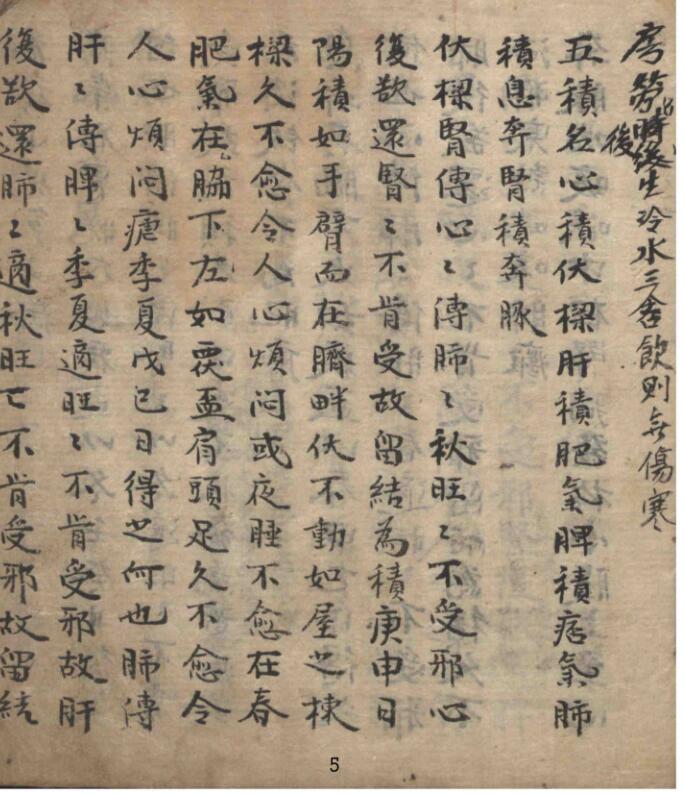 房勞後生冷水三舍飲則無傷寒
五積名心積伏樑肝積肥氣脾積痞氣肺
積息奔腎積奔豚
伏樑腎傳心〻傳肺〻秋旺〻不受邪心
後欲還腎〻不肯受故留結為積庚申日
陽積如手臂而在臍畔伏不動如屋之棟
樑久不愈令人心煩悶或夜睡不愈在春
肥氣在脇下左如覆盃肩頭足久不愈令
人心煩悶瘧季夏戊己日得之何也肺傳
肝〻傳脾〻季夏適旺〻不肯受邪故肝
後欲還肺〻適秋旺亡不肯受邪故留結
5